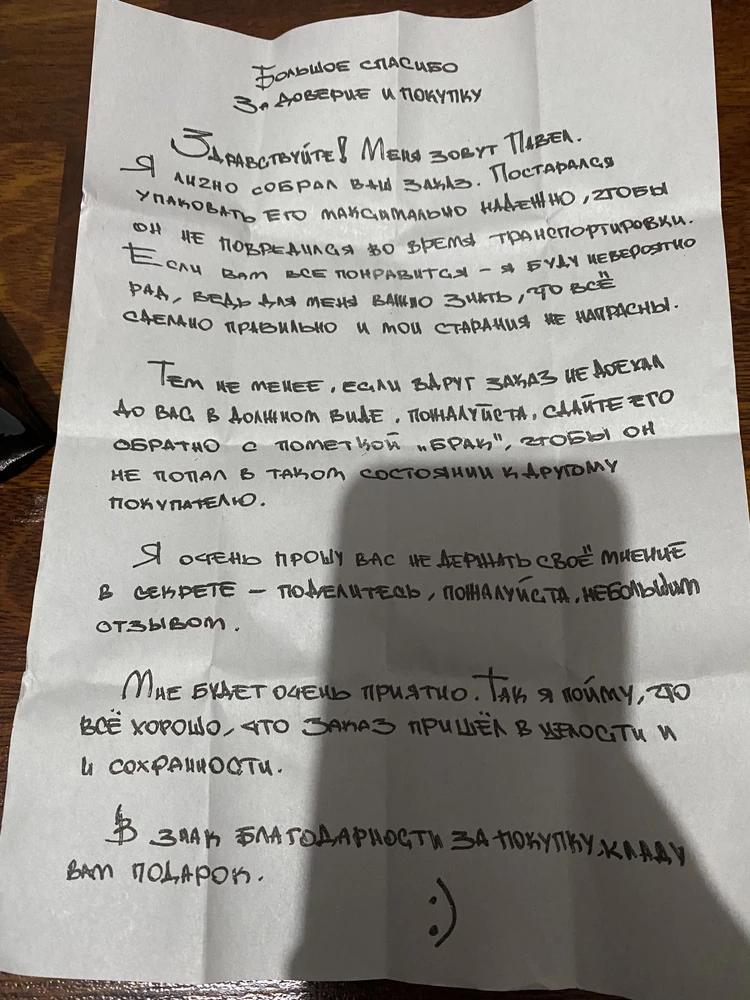 Большое спасибо
За доверие и покупку
Здравствуйте! Меня зовут Павел.
Я лично собрал ваш заказ. Постарался
упаковать его максимально надежно, чтобы
он не повредился во время транспортировки.
Если вам все понравится – я буду невероятно
рад, ведь для меня важно знать, что всё
сделано правильно и мои старания не напрасны.
Тем не менее, если вдруг заказ не доехал
до вас в должном виде, пожалуйста, сдайте его
обратно с пометкой „брак", чтобы он
не попал в таком состоянии к другому
покупателю.
Я очень прошу вас не держать своё мнение
в секрете – поделитесь, пожалуйста, небольшим
отзывом.
Мне будет очень приятно. Так я пойму, что
всё хорошо, что заказ пришёл в целости и
и сохранности.
В знак благодарности за покупку, кладу
вам подарок.
:)